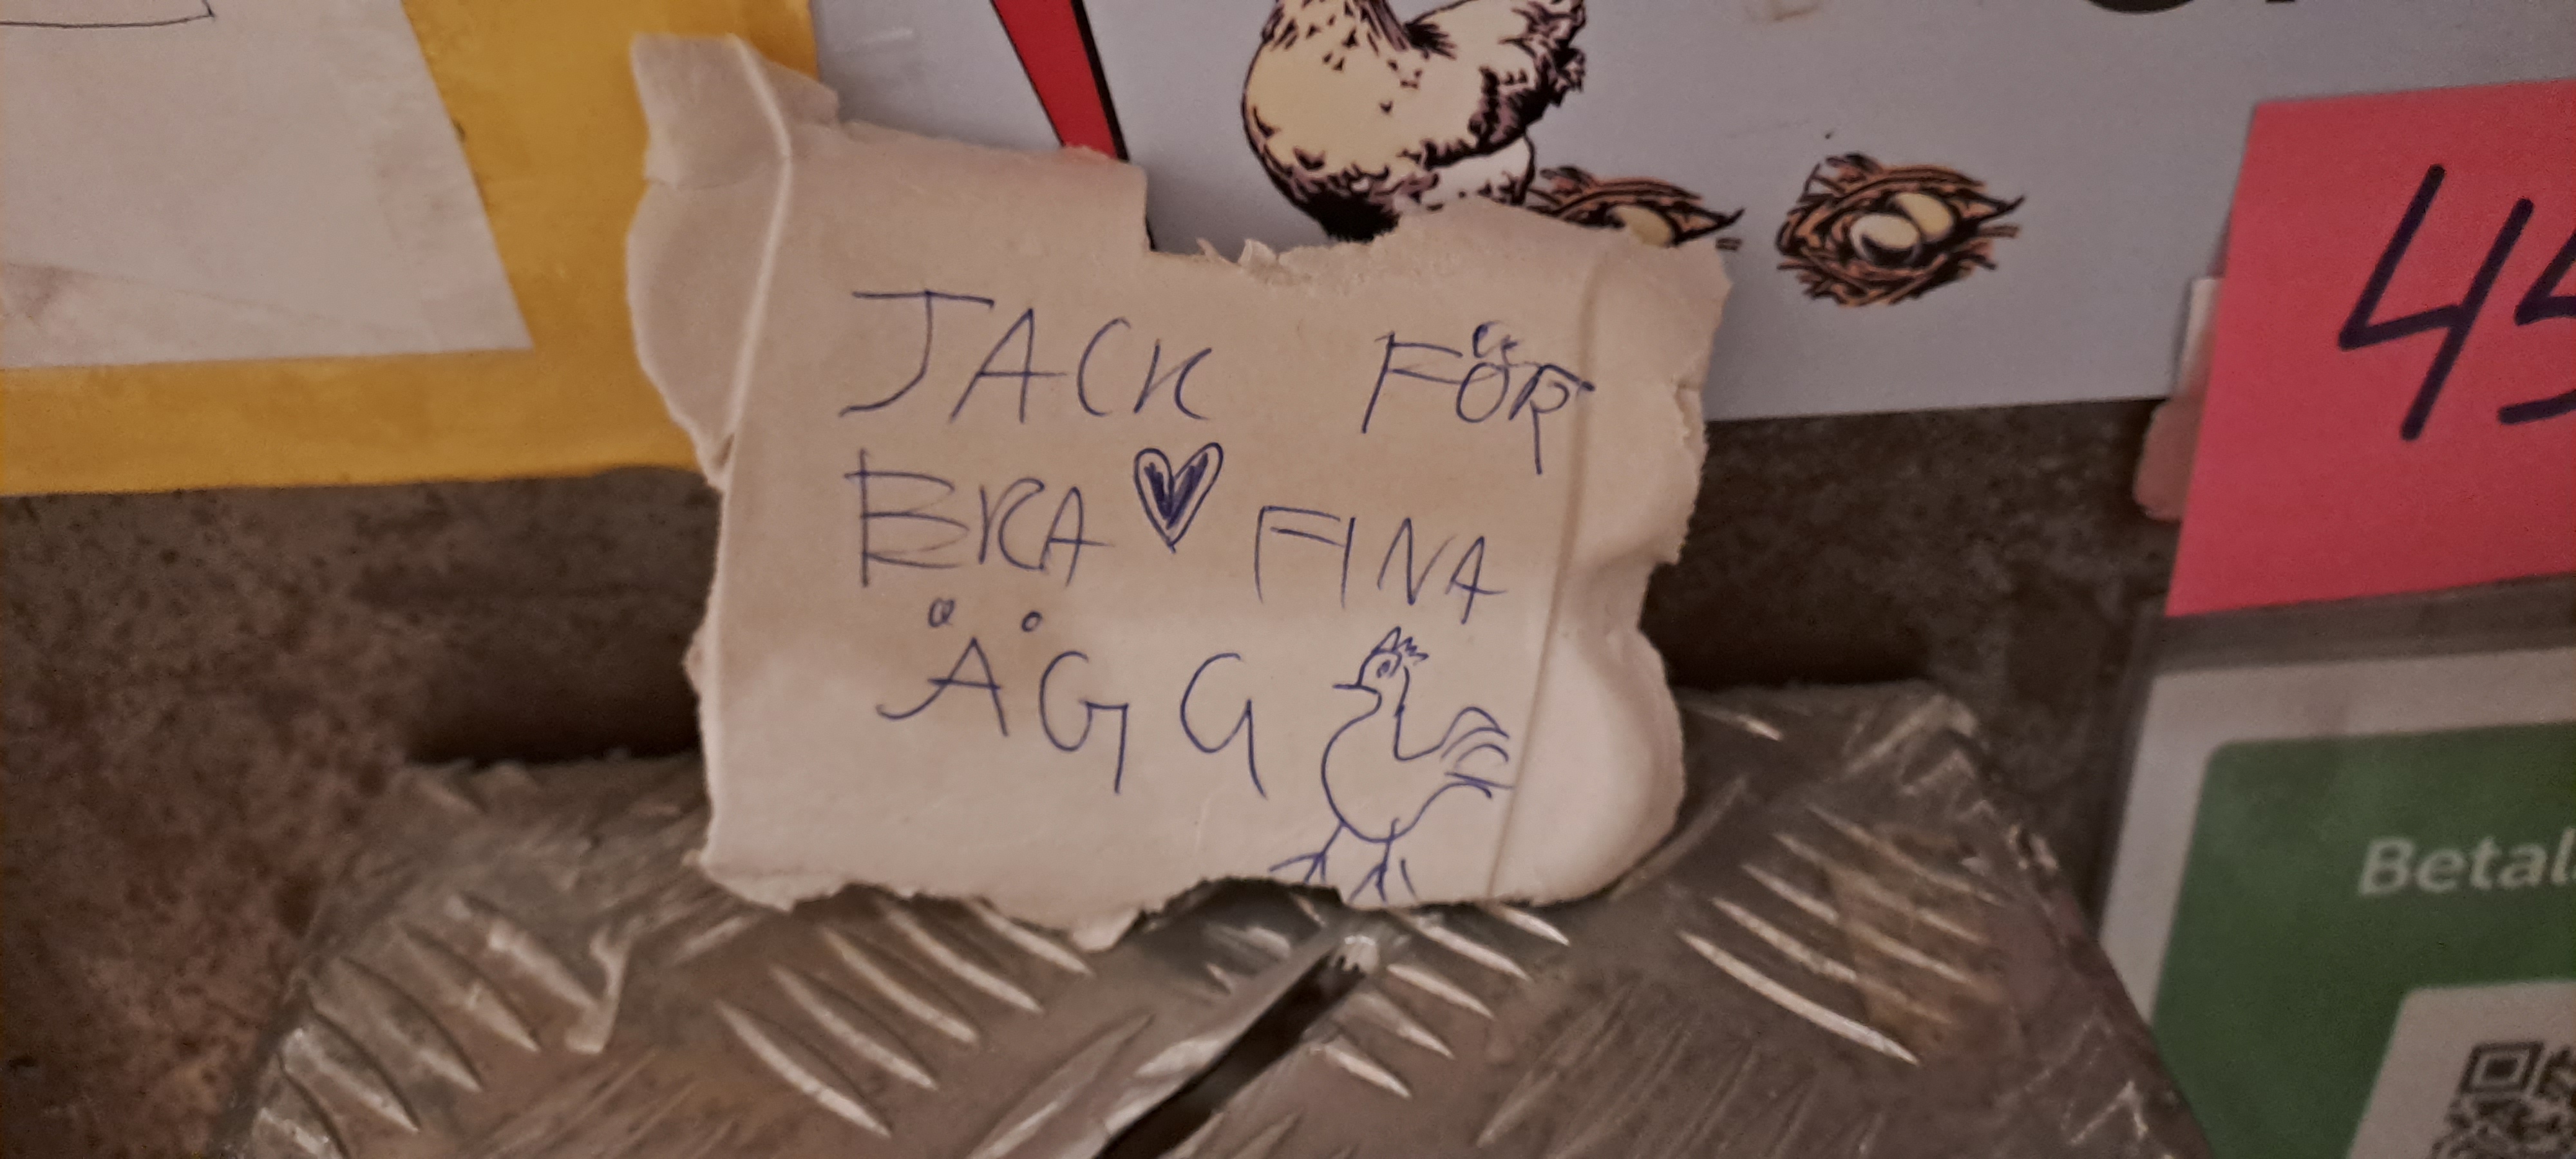 JACK FÖR
BRA FINA
ÄGG
45
Betal